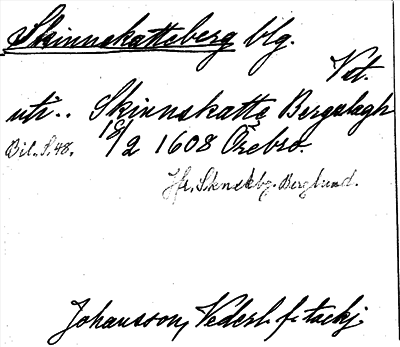 Skinnskattsberg blg.
Vst.
uti.. Skinnskatte Bergslagh
Bil. S. 48. 18/2 1608 Örebro.
Jfr. Sknskbg. Berglund.
Johansson, Vedersl. f. tackj